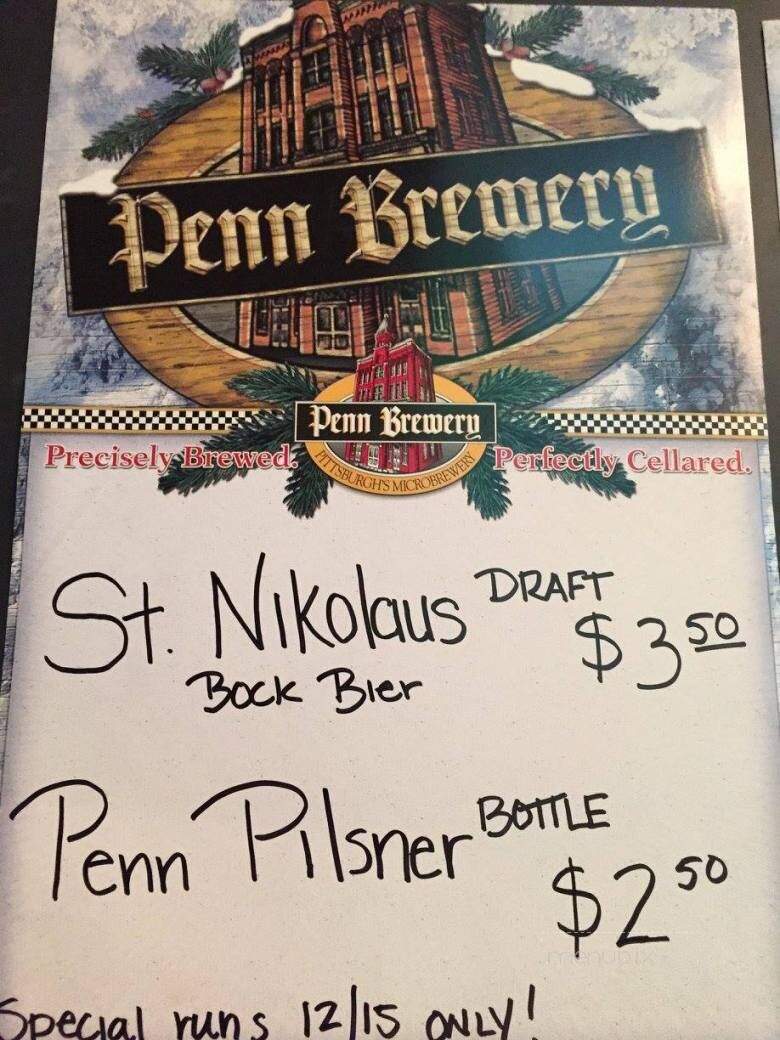 Penn Brewery
Penn Brewery
PITTSBURGH'S MICROBREWERY
Precisely Brewed. Perfectly Cellared.
St. Nikolaus DRAFT
Bock Bier $3.50
Penn Pilsner BOTTLE
$2.50
menupix
Special runs 12/15 ONLY!